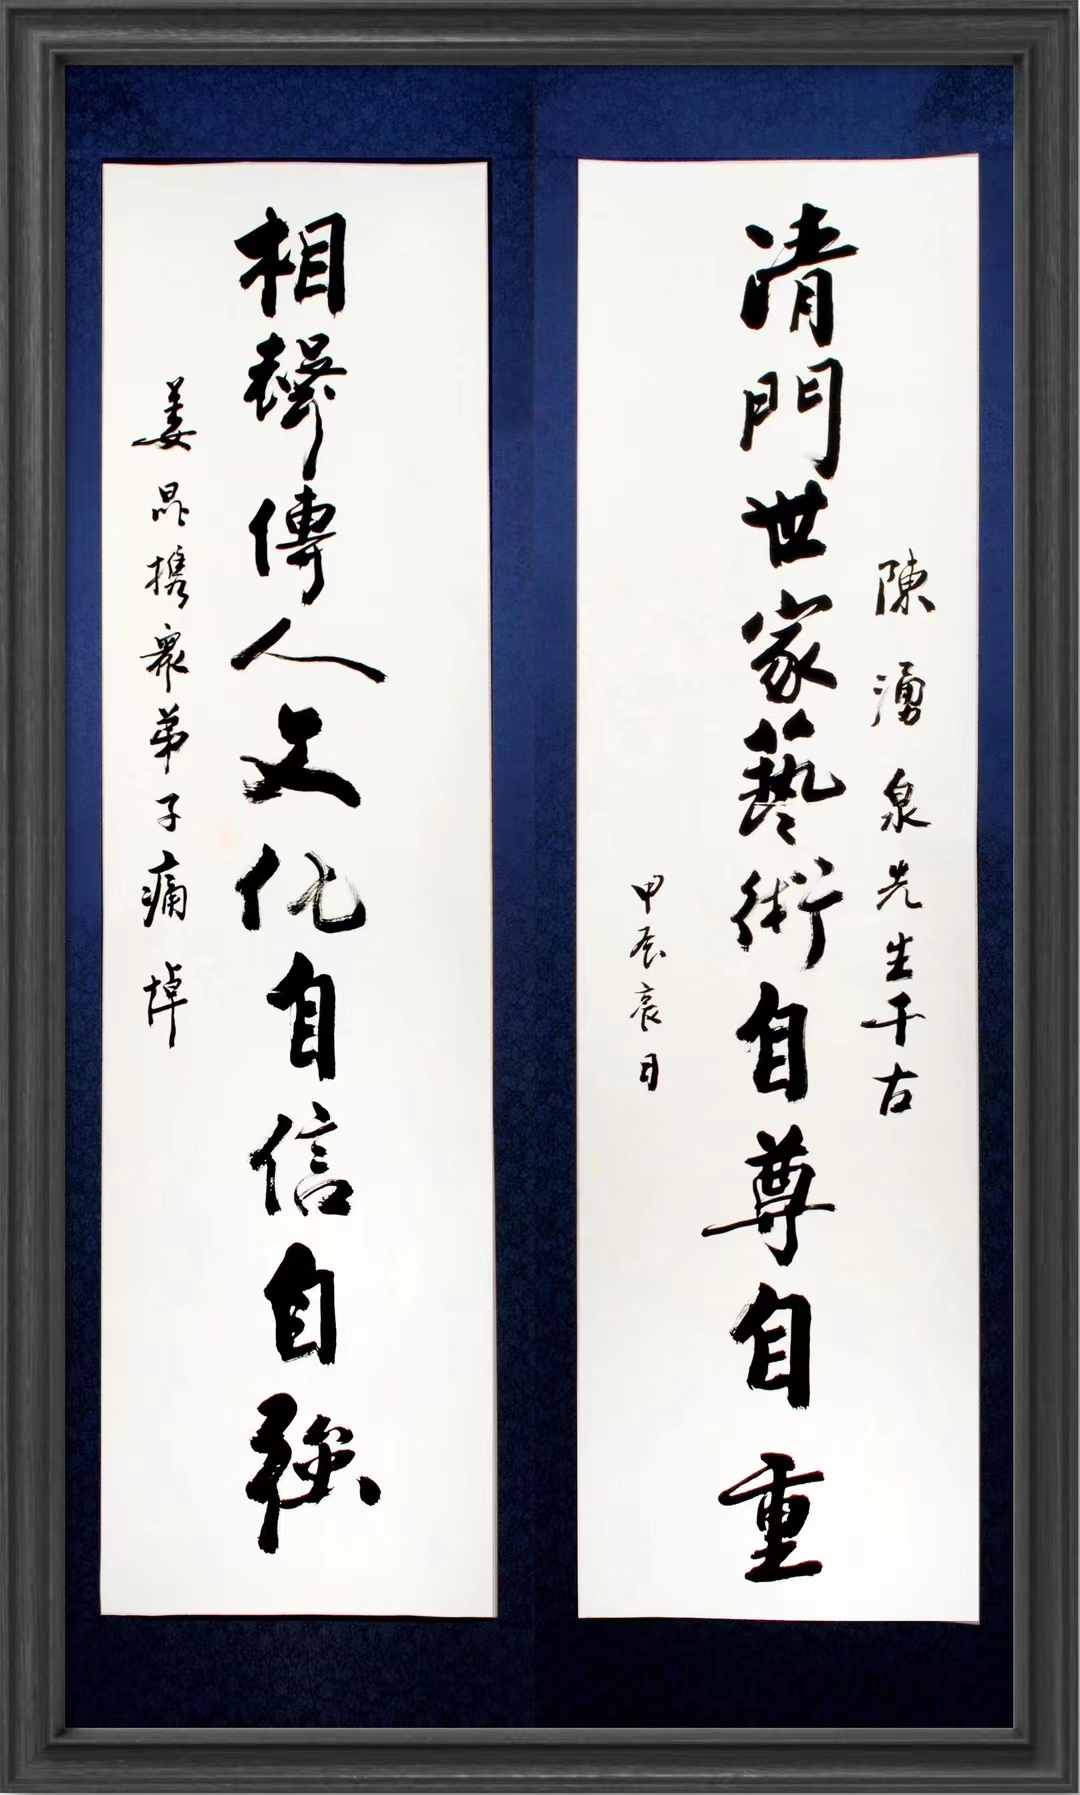 陳湧泉先生千古
清門世家藝術自尊自重
甲辰哀日
相聲傳人文化自信自強
姜昆携衆弟子痛悼